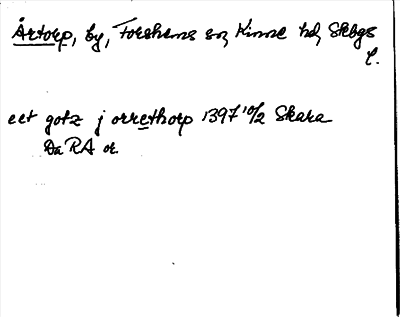 Årtorp, by, Forshems sn, Kinne hd, Skbgs
l.
eet gotz j orrethorp 1397 10/2 Skara
Da RA or.